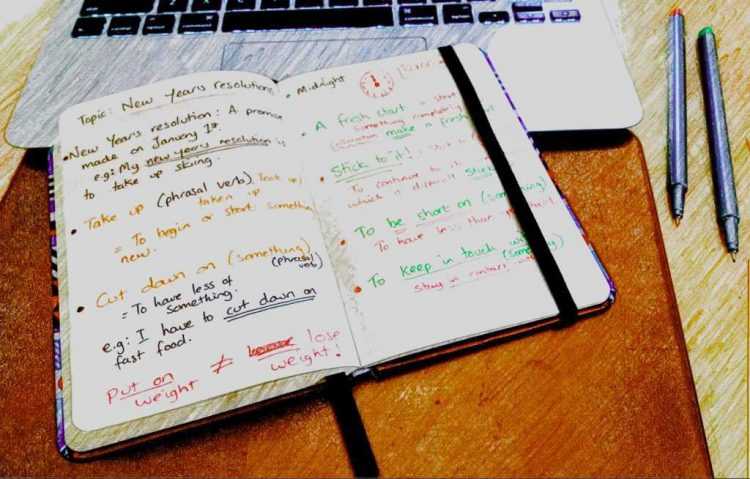 Topic: New Years resolutions
• New Years resolution: A promise
made on January 1st.
e.g: My new years resolution is
to take up skiing.
• Take up (phrasal verb) Took up
taken up
= To begin or start something
new.
• Cut down on (something)
(phrasal
verb)
= To have less of
something.
e.g: I have to cut down on
fast food.
Put on
weight
≠ lose
weight!
• Midnight
• A fresh start = start
something completely
make a fresh
• Stick to it!
To continue to
which is difficult
• To be short on (something)
To have less than
• To keep in touch with
(somebody)
stay in contact